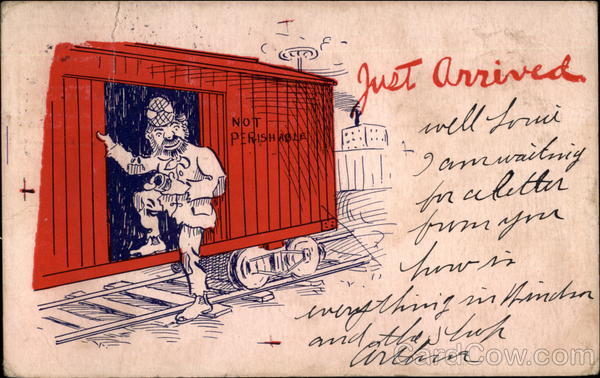 Just Arrived
NOT
PERISHABLE
well Louie
I am waiting
for a letter
from you
how is
everything in Windsor
and the shop
Arthur
CardCow.com